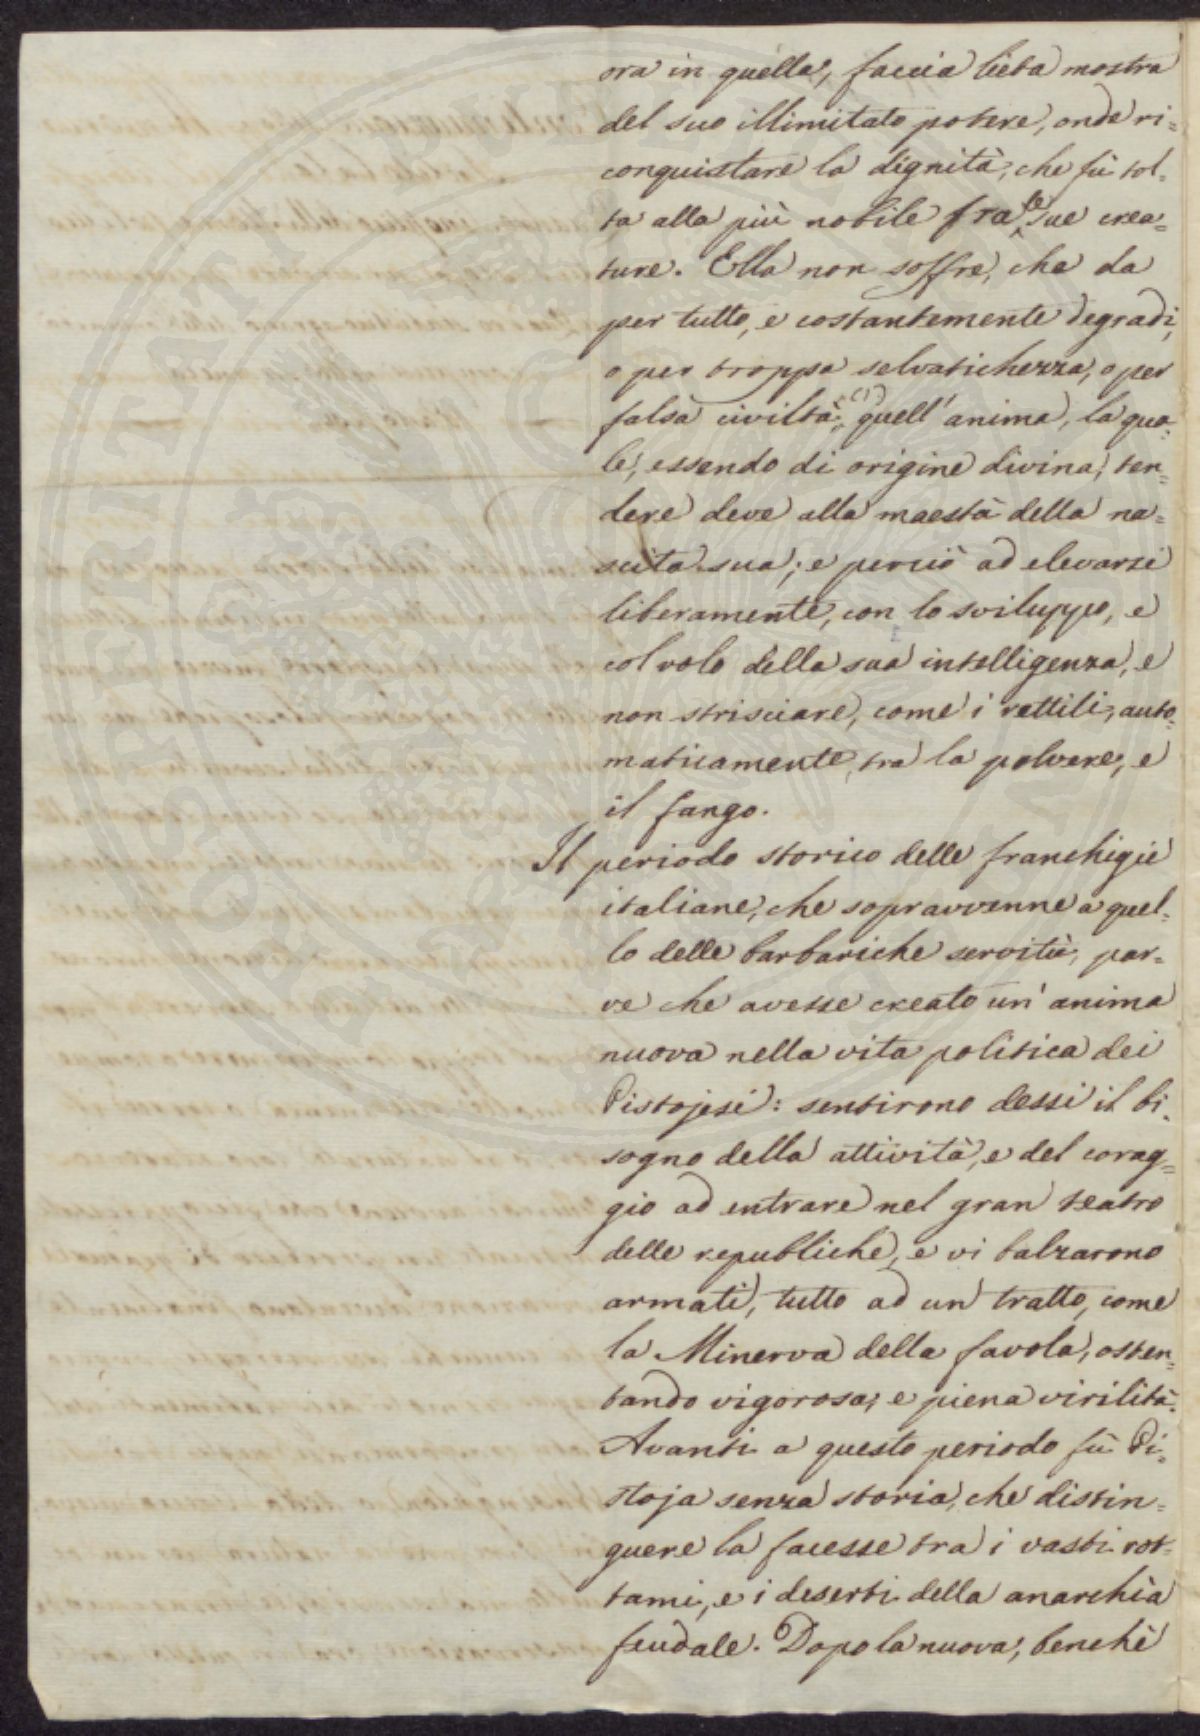 ora in quella, faccia lieta mostra
del suo illimitato potere, onde ri=
conquistare la dignità, che fù tol=
ta alla più nobile fra le sue crea=
ture. Ella non soffre, che da
per tutto, e costantemente degradi,
o per troppa selvatichezza, o per
falsa civiltà, (1) quell'anima, la qua=
le, essendo di origine divina, ten=
dere deve alla maestà della na=
scita sua; e perciò ad elevarsi
liberamente, con lo sviluppo, e
col volo della sua intelligenza, e
non strisciare, come i rettili, auto=
maticamente, tra la polvere, e
il fango.
Il periodo storico delle franchigie
italiane, che sopravvenne a quel=
lo delle barbariche servitù, par=
ve che avesse creato un'anima
nuova nella vita politica dei
Pistojesi: sentirono dessi il bi=
sogno della attività, e del corag=
gio ad entrare nel gran teatro
delle republiche, e vi balzarono
armati, tutto ad un tratto, come
la Minerva della favola, osten=
tando vigorosa, e piena virilità.
Avanti a questo periodo fù Pi=
stoja senza storia, che distin=
guere la facesse tra i vasti rot=
tami, e i deserti della anarchia
feudale. Dopo la nuova, benchè